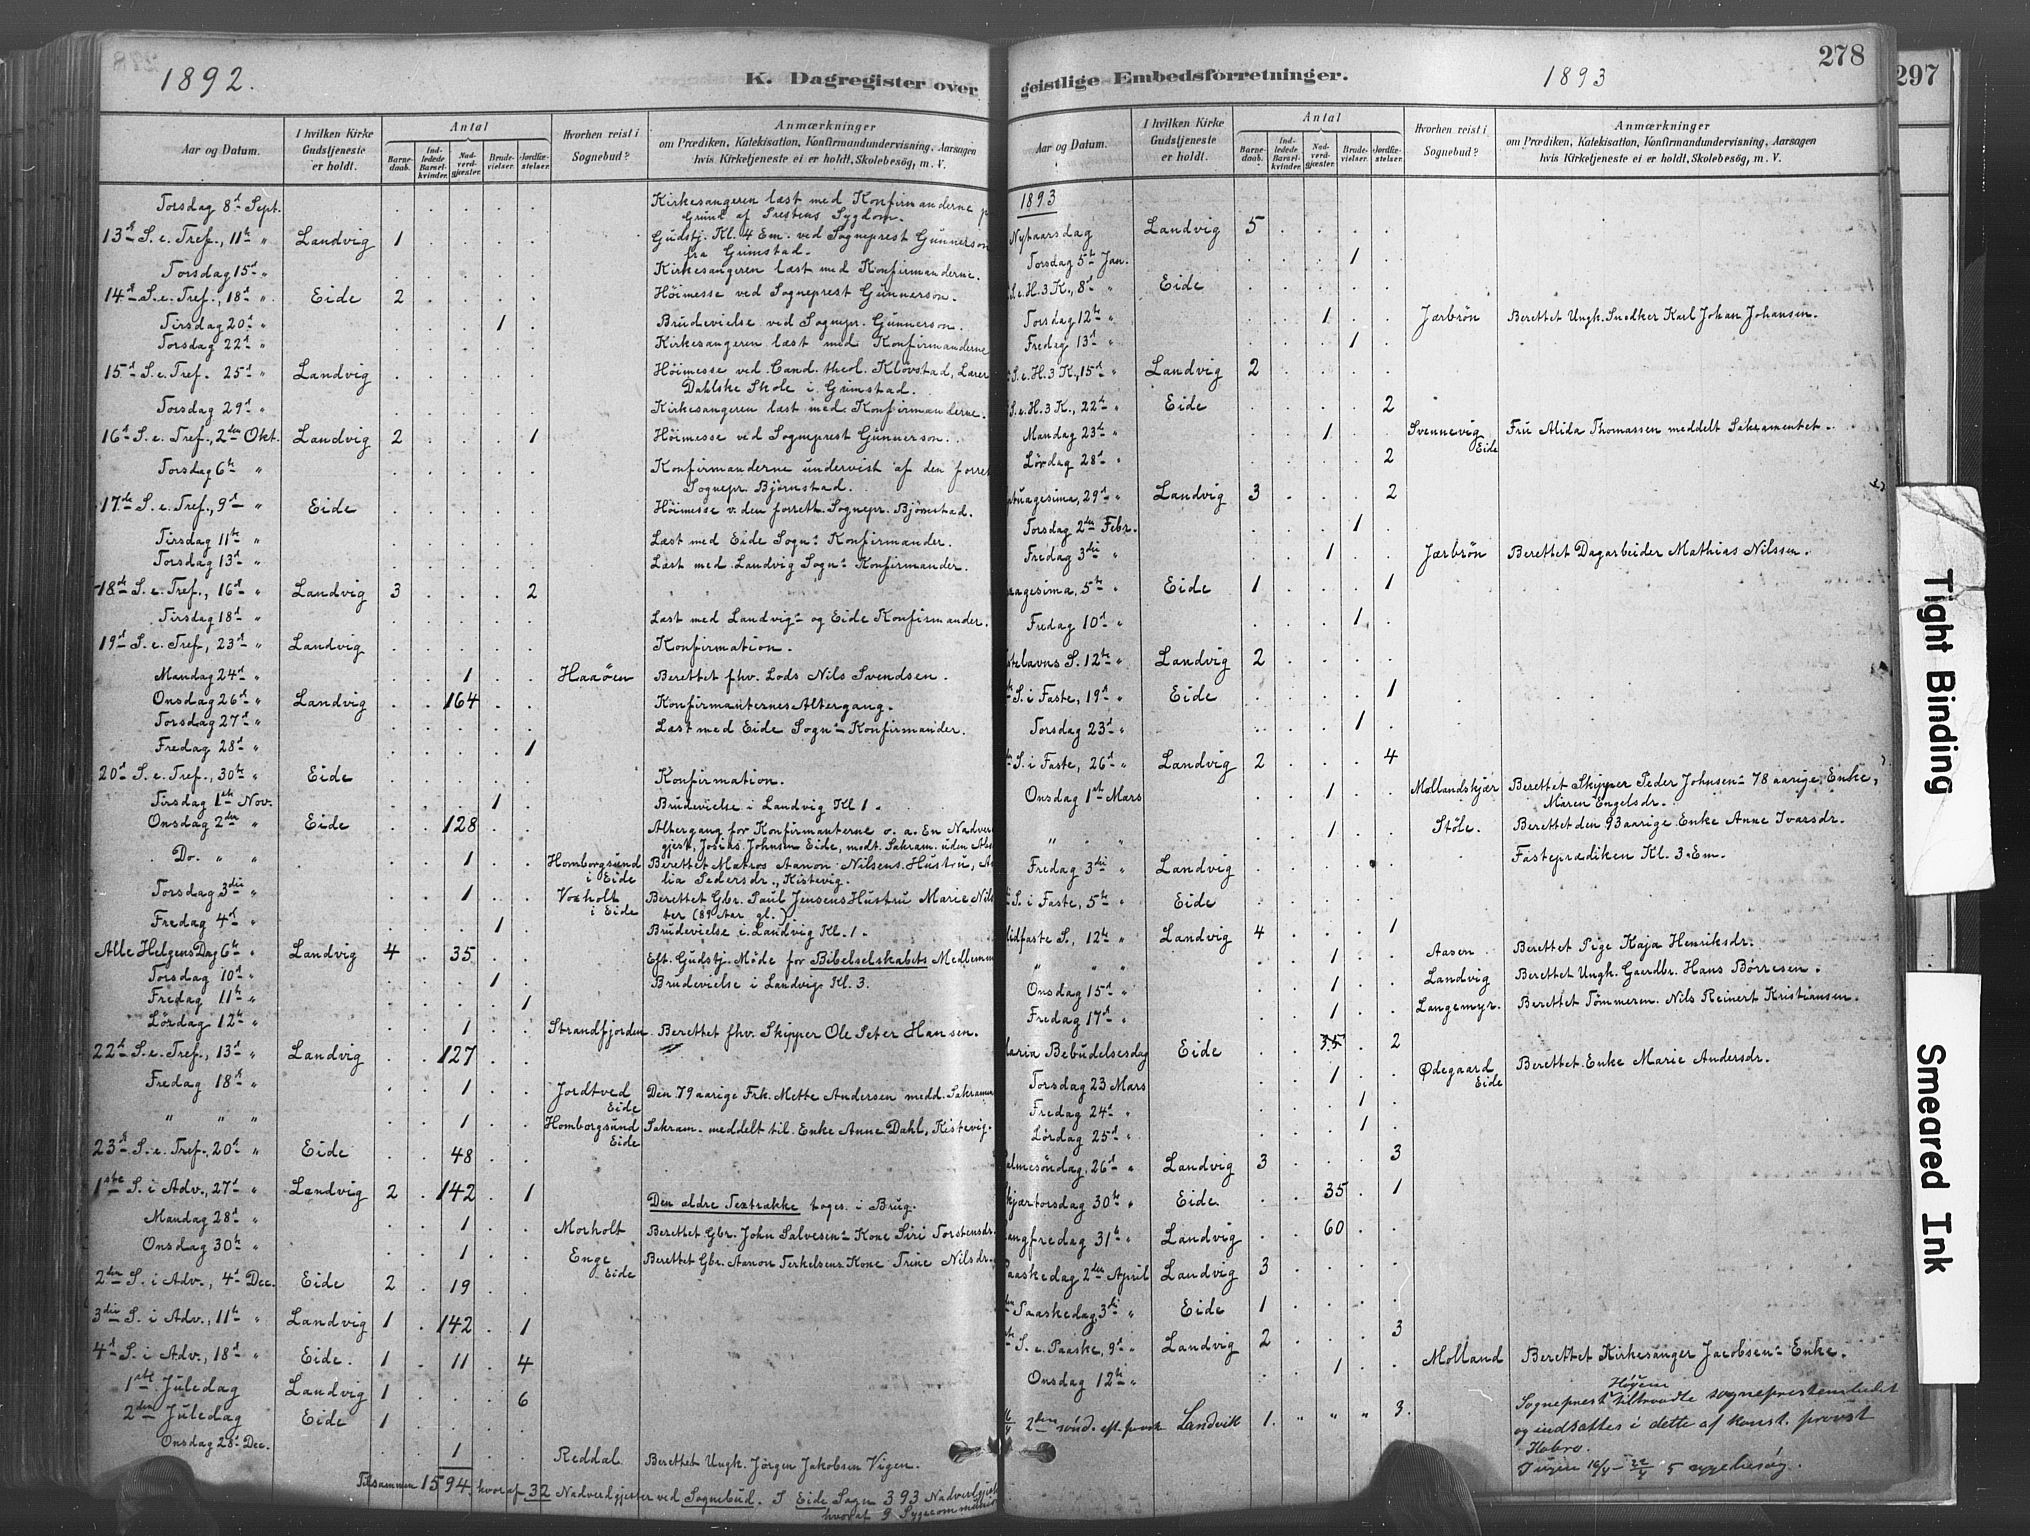 1892.
K. Dagregister over
Aar og Datum.
I hvilken Kirke Gudstjeneste er holdt.
Antal
Barnedaab.
Indledede Barselkvinder.
Nadverdgjæster.
Brudevielser.
Jordfæstelser.
Hvorhen reist i Sognebud?
Anmærkninger
om Prædiken, Katekisation, Konfirmandundervisning, Aarsagen
hvis Kirketjeneste ei er holdt, Skolebesög, m. V.
Torsdag 8d Sept. Kirkesangeren læst med Konfirmanderne p
Grund af Prestens Sygdom.
13d S. e. Tref., 11te " Landvig 1 Gudstj. Kl. 4 Em. ved Sogneprest Gunnerson
fra Grimstad.
Torsdag 15d " Kirkesangeren læst med Konfirmanderne.
14d S. e. Tref., 18d " Eide 2 Höimesse ved Sogneprest Gunnerson.
Tirsdag 20d " 1 Brudevielse ved Sognepr. Gunnerson.
Torsdag 22d " Kirkesangeren læst med Konfirmanderne
15d S. e. Tref. 25d " Landvig Höimesse ved Cand. theol. Klövstad, Lærer
Dahlske Skole i Grimstad.
Torsdag 29d " Kirkesangeren læst med Konfirmanderne.
16d S. e. Tref., 2den Okt. Landvig 2 1 Höimesse ved Sogneprest Gunnerson.
Torsdag 6te " Konfirmanderne undervist af den forret
Sognepr. Björnstad.
17de S. e. Tref., 9d " Eide Höimesse v. den forrett. Sognepr. Björnstad.
Tirsdag 11te " Læst med Eide Sogns Konfirmander.
Torsdag 13d " Læst med Landvig Sogns Konfirmander.
18de S. e. Tref., 16d " Landvig 3 2
Tirsdag 18d " Læst med Landvig- og Eide Konfirmander.
19d S. e. Tref., 23d " Landvig Konfirmation.
Mandag 24d " 1 Haaöen Berettet fhv. Lods Nils Svendsen.
Onsdag 26d " Landvig 164 Konfirmanternes Altergang.
Torsdag 27d " Læst med Eide Sogns Konfirmander.
Fredag 28d " 1
20d S. e. Tref., 30te " Eide Konfirmation.
Tirsdag 1ste Nov. 1 Brudevielse i Landvig Kl 1.
Onsdag 2den " Eide 128 Altergang for Konfirmanterne o. a. En Nadver
gjest, Josias Johnsen Eide, medt. Sakram. uden Abs
Do. " " 1 Homborgsund i Eide Berettet Matros Aanon Nilsens Hustru, A
lia Pedersdr., Kistevig.
Torsdag 3die " 1 Voxholt i Eide Berettet Gbr. Paul Jensens Hustru Marie Nils
ter (89 Aar gl.)
Fredag 4d " 1 Brudevielse i Landvig Kl. 1.
Alle Helgens Dag 6te " Landvig 4 35 Eft. Gudstj. Möde for Bibelselskabets Medlemm
Torsdag 10d " 1 Brudevielse i Landvig Kl. 3.
Fredag 11te " 1
Lördag 12te " 1 Strandfjorden Berettet fhv. Skipper Ole Peter Hansen.
22d S. e. Tref., 13d " Landvig 127
Fredag 18d " 1 Jordtved Eide Den 79 aarige Frk. Mette Andersen medd. Sakramen
" " " 1 Homborgsund Eide Sakram. meddelt til Enke Anne Dahl, Kistevig.
23d S. e. Tref., 20d " Eide 48
1ste S. i Adv., 27d " Landvig 2 142 1 Den ældre Textrække toges i Brug.
Mandag 28d " 1 Morholt Berettet Gbr. John Salvesens Kone Siri Torstensdr.
Onsdag 30te " 1 Enge Eide Berettet Gbr. Aanon Terkelsens Kone Trine Nilsdr.
2den S. i Adv., 4d Dec. Eide 2 19
3die S. i Adv., 11te " Landvig 1 142 1
4d S. i Adv., 18d " Eide. 1 11 4
1ste Juledag Landvig 1 6
2den Juledag Eide 1
Onsdag 28d Dec. 1 Reddal Berettet Ungk. Jörgen Jakobsen Vigen.
Tilsammen 1594, hvoraf 32 Nadverdgjester ved Sognebud. I Eide Sogn 393 Nadverdgjest
hvoraf 9 Sygecommunion
geistlige Embedsforretninger.
1893
278
297
Aar og Datum.
I hvilken Kirke Gudstjeneste er holdt.
Antal
Barnedaab.
Indledede Barselkvinder.
Nadverdgjæster.
Brudevielser.
Jordfæstelser.
Hvorhen reist i Sognebud?
Anmærkninger
om Prædiken, Katekisation, Konfirmandundervisning, Aarsagen
hvis Kirketjeneste ei er holdt, Skolebesög, m. V.
1893
Nytaarsdag Landvig 5
Torsdag 5te Jan. 1
S. e. H. 3 K., 8d " Eide
Torsdag 12te " 1 Jærbrön Berettet Ungk. Snedker Karl Johan Johansen.
Fredag 13d " 1
S. e. H. 3 K., 15d " Landvig 2
S. e. H. 3 K., 22d " Eide 2
Mandag 23d " 1 Svennevig Eide Fru Alida Thomassen meddelt Sakramentet.
Lördag 28d " 2
tuagesima, 29d " Landvig 3 2
Torsdag 2den Febr. 1
Fredag 3die " 1 Jærbrön Berettet Dagarbeider Mathias Nilssen.
agesima, 5te " Eide 1 1
Fredag 10d " 1
stelavns S. 12te " Landvig 2
S. i Faste, 19d " Eide 1
Torsdag 23d " 1
S. i Faste, 26d " Landvig 2 4
Onsdag 1ste Mars 1 Mollandskjær Berettet Skipper Peder Johnsens 78 aarige Enke,
Maren Engelsdr.
" " " 1 Støle. Berettet den 93 aarige Enke Anne Ivarsdr.
Fredag 3die " Landvig Fasteprædiken Kl. 3 Em.
S. i Faste, 5te " Eide
Midfaste S., 12te " Landvig 4 1
" " 1 Aasen Berettet Pige Kaja Henriksdr.
Onsdag 15d " 1 Landvig Berettet Ungk. Gaardbr. Hans Börresen.
Fredag 17d " 1 Langemyr. Berettet Tömmerm. Nils Reinert Kristiansen.
Maria Bebudelsesdag Eide 35 2
Torsdag 23 Mars 1 Ødegaard Eide Berettet Enke Marie Andersdr.
Fredag 24d " 1
Lördag 25d " 1
Palmesöndag, 26d " Landvig 3 3
Skjærtorsdag 30te " Eide 35 1
Langfredag 31te " Landvig 60
Paaskedag 2den April Landvig 3
Paaskedag, 3die " Eide 1
S. e. Paaske, 9d " Landvig 2 3
Onsdag 12te " 1 Molland Berettet Kirkesanger Jacobsens Enke.
16/4 2den sönd. eft. paask Landvik 1. " " " 3. Sogneprest Höyem tiltraadte sogneprestembedet
og indsattes i dette af konst. provst
Hobro.
I ugen 16/4 - 22/4 5 sygebesög.
Tight Binding
Smeared Ink